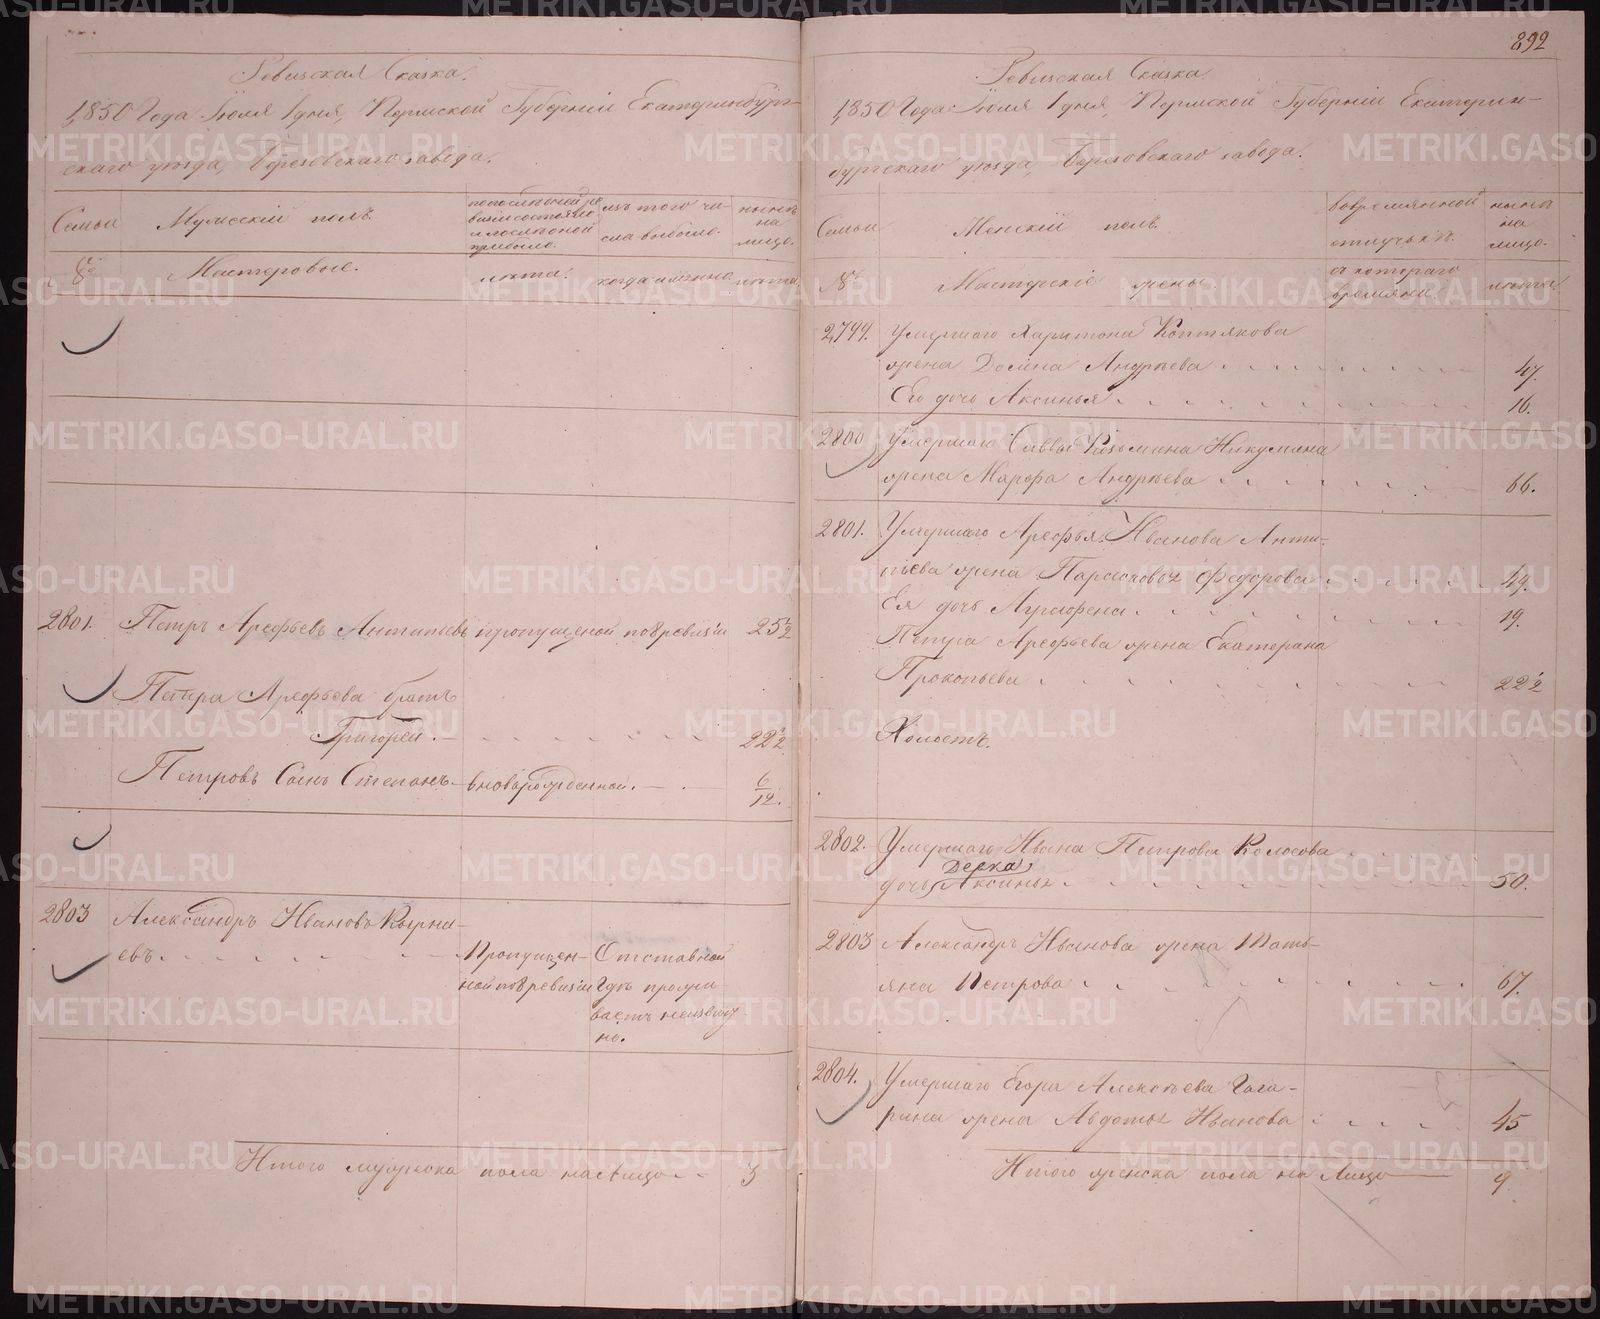 892
Ревизская Сказка.
1850 Года Июля 1 дня, Пермской Губерніи Екатеринбург-
скаго уезда, Березовскаго завода.
Семьи
Мужескій полъ.
по последней ре
визіи состояло
и после оной
прибыло.
изъ того чи-
сла выбыло.
ныне
на
лицо.
№
Мастеровые.
лета.
когда именно
лета.
2801. Петръ Арефьевъ Антипьевъ пропущеной по 8 ревизіи 25 1/2
Петра Арефьева братъ
Григорей. 22 1/2
Петровъ Сынъ Степанъ - вноворожденной. 6/12.
2803 Александръ Ивановъ Кырна-
евъ. Пропущен- Отставной
ной по 8 ревизіи Гдъ прожи-
ваетъ неизвест
но.
Итого мужеска пола на лицо - - 3
Ревизская Сказка
1850 Года Июля 1 дня, Пермской Губерніи Екатерин-
бургскаго уезда, Березовскаго завода.
Семьи
Женскій полъ.
во временной
отлучьке.
ныне
на
лицо.
№
Мастерскіе жены.
съ котораго
времяни.
лета.
2799. Умершаго Харитона Коптякова
жена Домна Андреева 47.
Его дочь Аксинья 16.
2800 Умершаго Саввы Козьмина Никулина
жена Марфа Андреева 66.
2801. Умершаго Арефья Иванова Анти-
пьева жена Парасковья Федорова 49.
Ея дочь Аграфена 19.
Петра Арефьева жена Екатерина
Прокопьева 22 1/2
Холостъ.
2802. Умершаго Ивана Петрова Колосова
Девка
дочь Аксинья 50.
2803 Александръ Иванова жена Тать-
яна Петрова 67.
2804. Умершаго Егора Алексеева Гага-
рина жена Авдотья Иванова 45
Итого женска пола на Лицо 9
METRIKI.GASO-URAL.RU